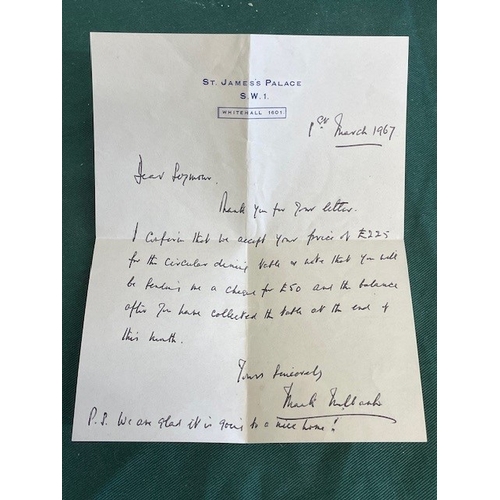 ST. JAMES'S PALACE
S.W.1.
WHITEHALL 1601
1st March 1967
Dear Seymour.
Thank you for your letter.
I confirm that we accept your price of £225
for the circular dining table & note that you will
be sending me a cheque for £50 and the balance
after you have collected the table at the end of
this month.
Yours Sincerely
Mark Milbank
P.S. We are glad it is going to a nice home!